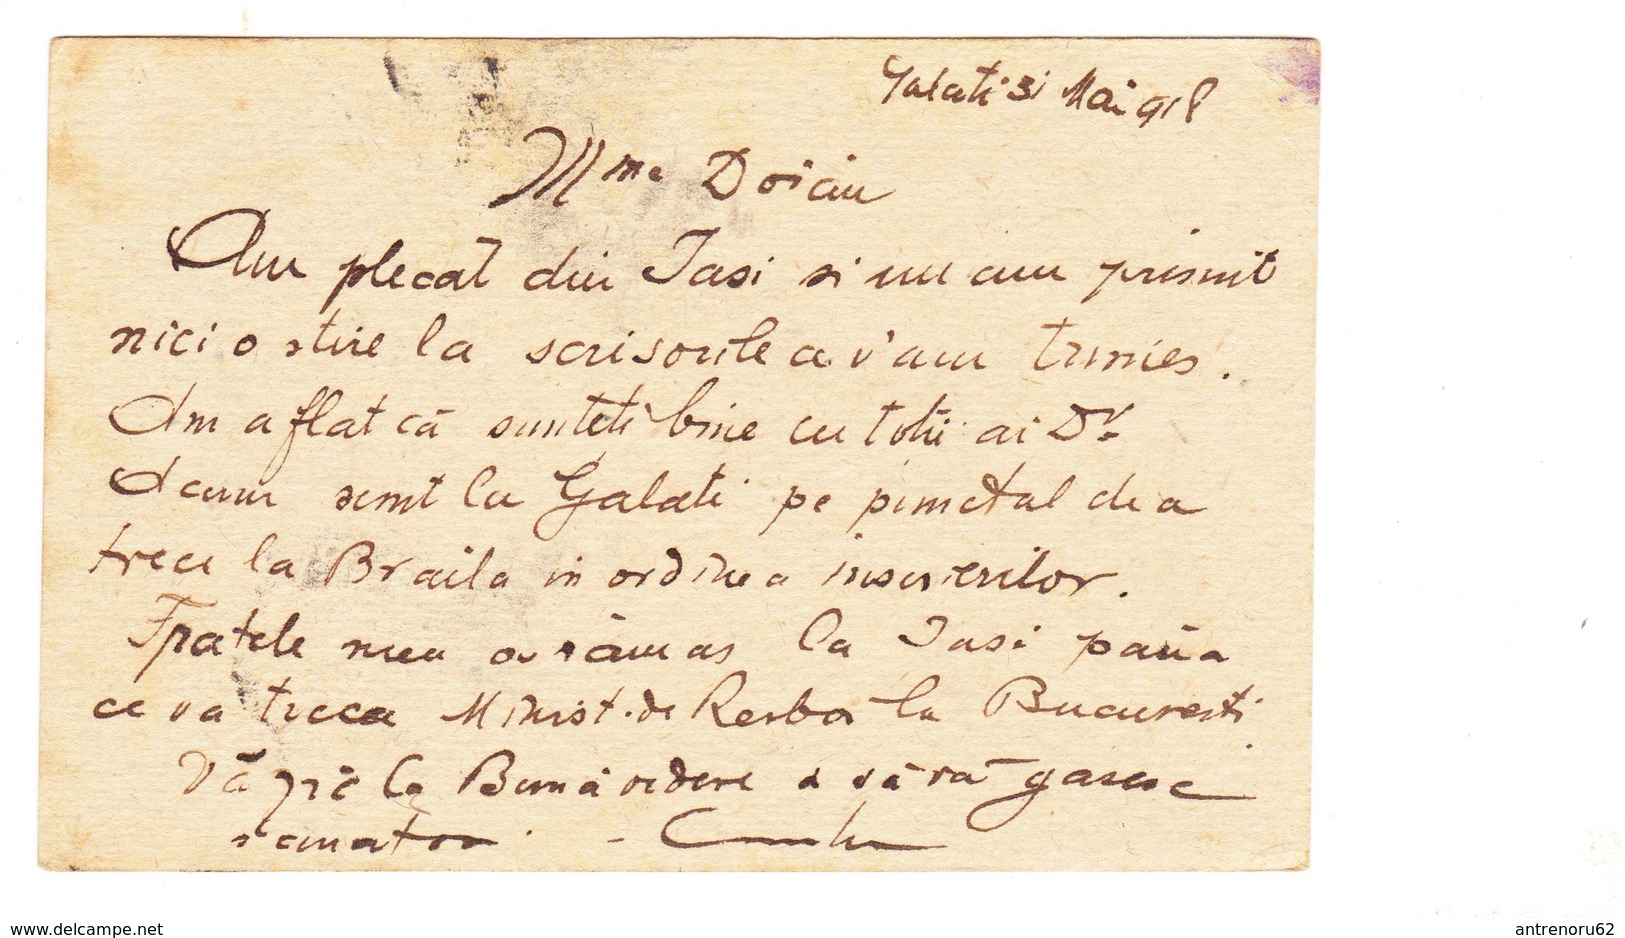 Galati 31 Mai 918
Mme Doiciu
Am plecat din Iasi si nu am primit
nici o stire la scrisorile ce v'am trimes.
Am aflat că sunteti bine cu totii ai Dv.
Acum sunt la Galati pe punctul de a
trece la Braila in ordinea inscrierilor.
Fratele meu a rămas la Iasi până
ce va trece Minist. de Resboi la Bucuresti.
Vă zic la Bună vedere să vă găsesc
sanatoa
www.delcampe.net
antrenoru62